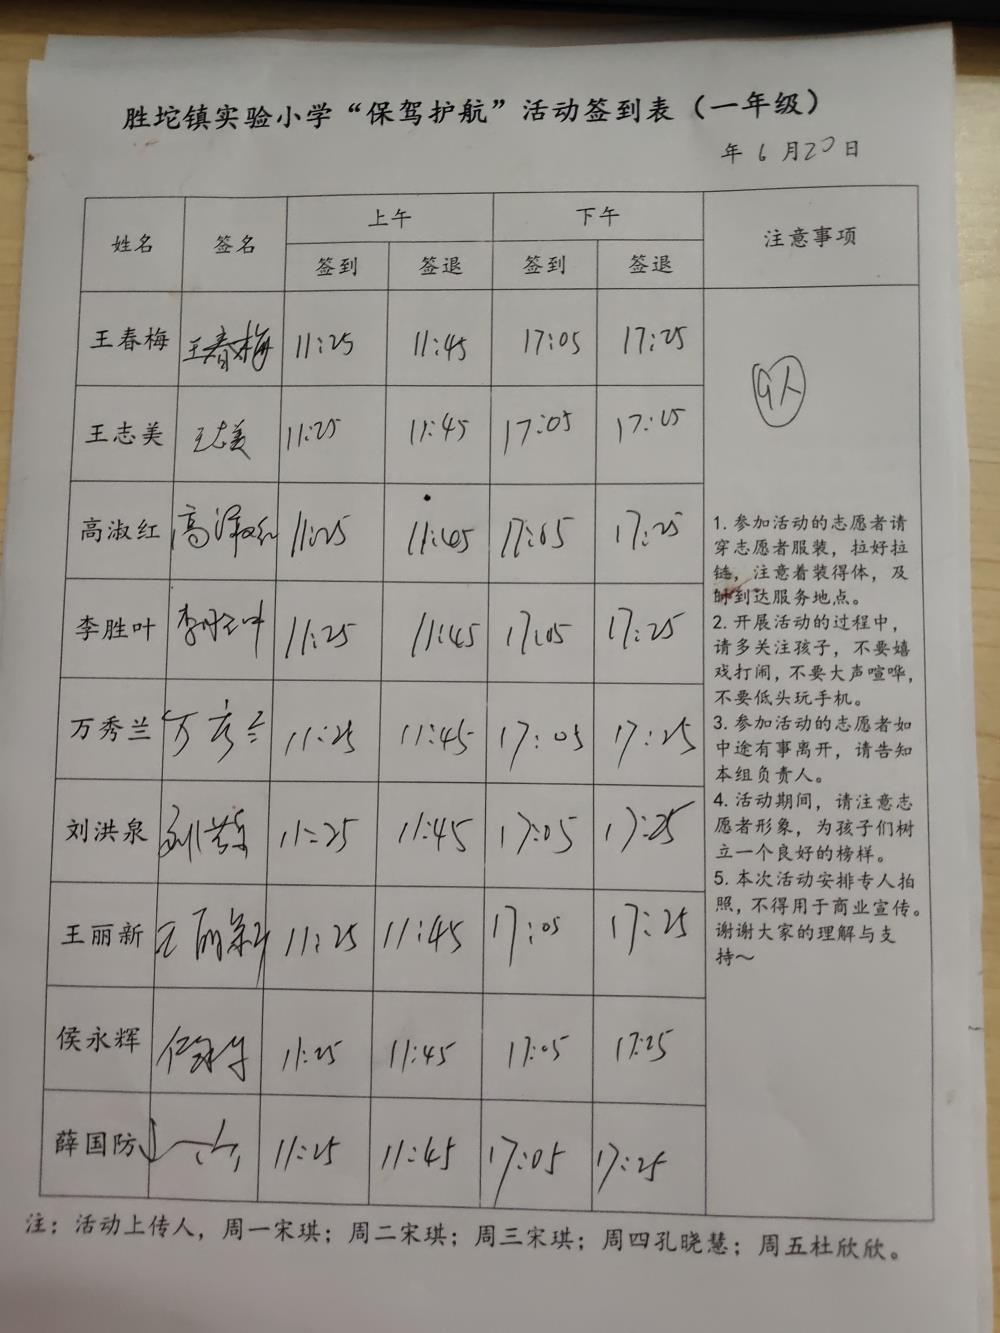 胜坨镇实验小学“保驾护航”活动签到表（一年级）
年 6 月20日
姓名 签名 上午 下午 注意事项
签到 签退 签到 签退
王春梅 王春梅 11:25 11:45 17:05 17:25
9人
王志美 王志美 11:25 11:45 17:05 17:25
高淑红 高淑红 11:25 11:45 17:05 17:25
李胜叶 李胜叶 11:25 11:45 17:05 17:25
万秀兰 万秀兰 11:25 11:45 17:05 17:25
刘洪泉 刘洪泉 11:25 11:45 17:05 17:25
王丽新 王丽新 11:25 11:45 17:05 17:25
侯永辉 11:25 11:45 17:05 17:25
薛国防 11:25 11:45 17:05 17:25
1. 参加活动的志愿者请
穿志愿者服装，拉好拉
链，注意着装得体，及
时到达服务地点。
2. 开展活动的过程中，
请多关注孩子，不要嬉
戏打闹，不要大声喧哗，
不要低头玩手机。
3. 参加活动的志愿者如
中途有事离开，请告知
本组负责人。
4. 活动期间，请注意志
愿者形象，为孩子们树
立一个良好的榜样。
5. 本次活动安排专人拍
照，不得用于商业宣传。
谢谢大家的理解与支
持～
注：活动上传人，周一宋琪；周二宋琪；周三宋琪；周四孔晓慧；周五杜欣欣。